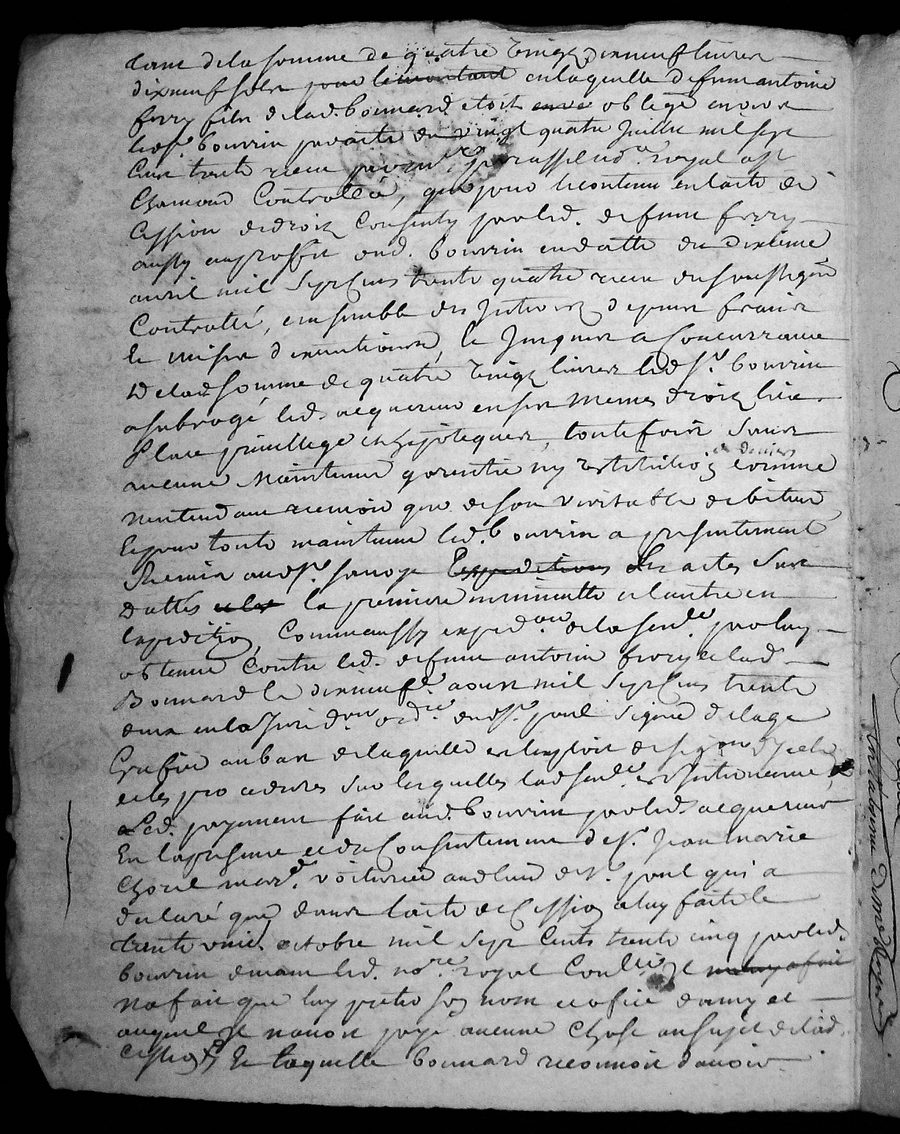 tant de la somme de quatre vingt dixneuf livres
dixneuf sols pour le montant en laquelle defunt antoine
ferry fils de lad. bonnard etoit obligé envers
led. Sr. bouvrin par acte du vingt quatre Juillet mil sept
Cent trente royal a St
Chamond Controllé, que pour le contenu en l'acte de
Cession de droits Consenty par led. defunt ferry
aussy au proffit dud. bouvrin en datte du dixieme
avril mil sept Cens trente quatre receu du soussigné
Controllé, ensemble des Interets depens frais
et mises d'executions, et Jusques a Concurrance
De lad. somme de quatre vingt livres led. Sr. bouvrin
a subrogé led. acquereur en ses memes droits lieu
Place privillege et hypoteques, toutefois sans
aucune Maintenue garentie ny restitution de deniers comme
n'entendant que de son veritable debiteur
Et pour toute maintenue led. bouvrin a presentement
Remis aud. Sr. Expeditions Les actes sus
Dattés la premiere en minutte et l'autre en
Expedition, Comme aussy exped.on de la sent.ce par luy
obtenue Contre led. defunt antoine ferry et lad.
Bonnard le dixneufe. aoust mil sept Cens trente
deux en la Jurid.on ord.re dud. St. paul Signé Delage
Greffier au bas de laquelle est l'exploit de sign.on d'Icelle
et les procedures sur lesquelles lad. sent.ce est Intervenue,
Led. payement fait aud. bouvrin par led. acquereur
En la presence et du Consentement de Sr. Jean marie
Chorel mar.d voiturier aud. lieu de St. paul qui a
declaré que dans l'acte de Cession a luy faitte le
trente unie. octobre mil sept Cents trente cinq par led.
bouvrin devant led. no.re royal il
n'a fait que luy preter son nom et office d'amy et
auquel il n'avoit payé aucune Chose au sujet de lad.
Cession, Et laquelle bonnard reconnoit d'avoir